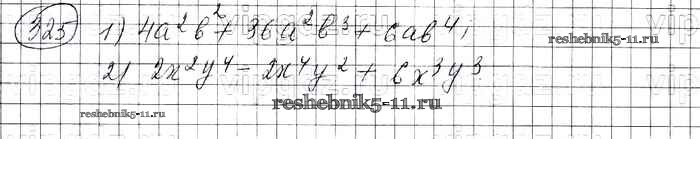 325 1) 4a²b² + 36a²b³ + 6ab⁴;
reshebnik5-11.ru
2) 2x²y⁴ - 2x⁴y² + 6x³y³
reshebnik5-11.ru
reshebnik5-11.ru